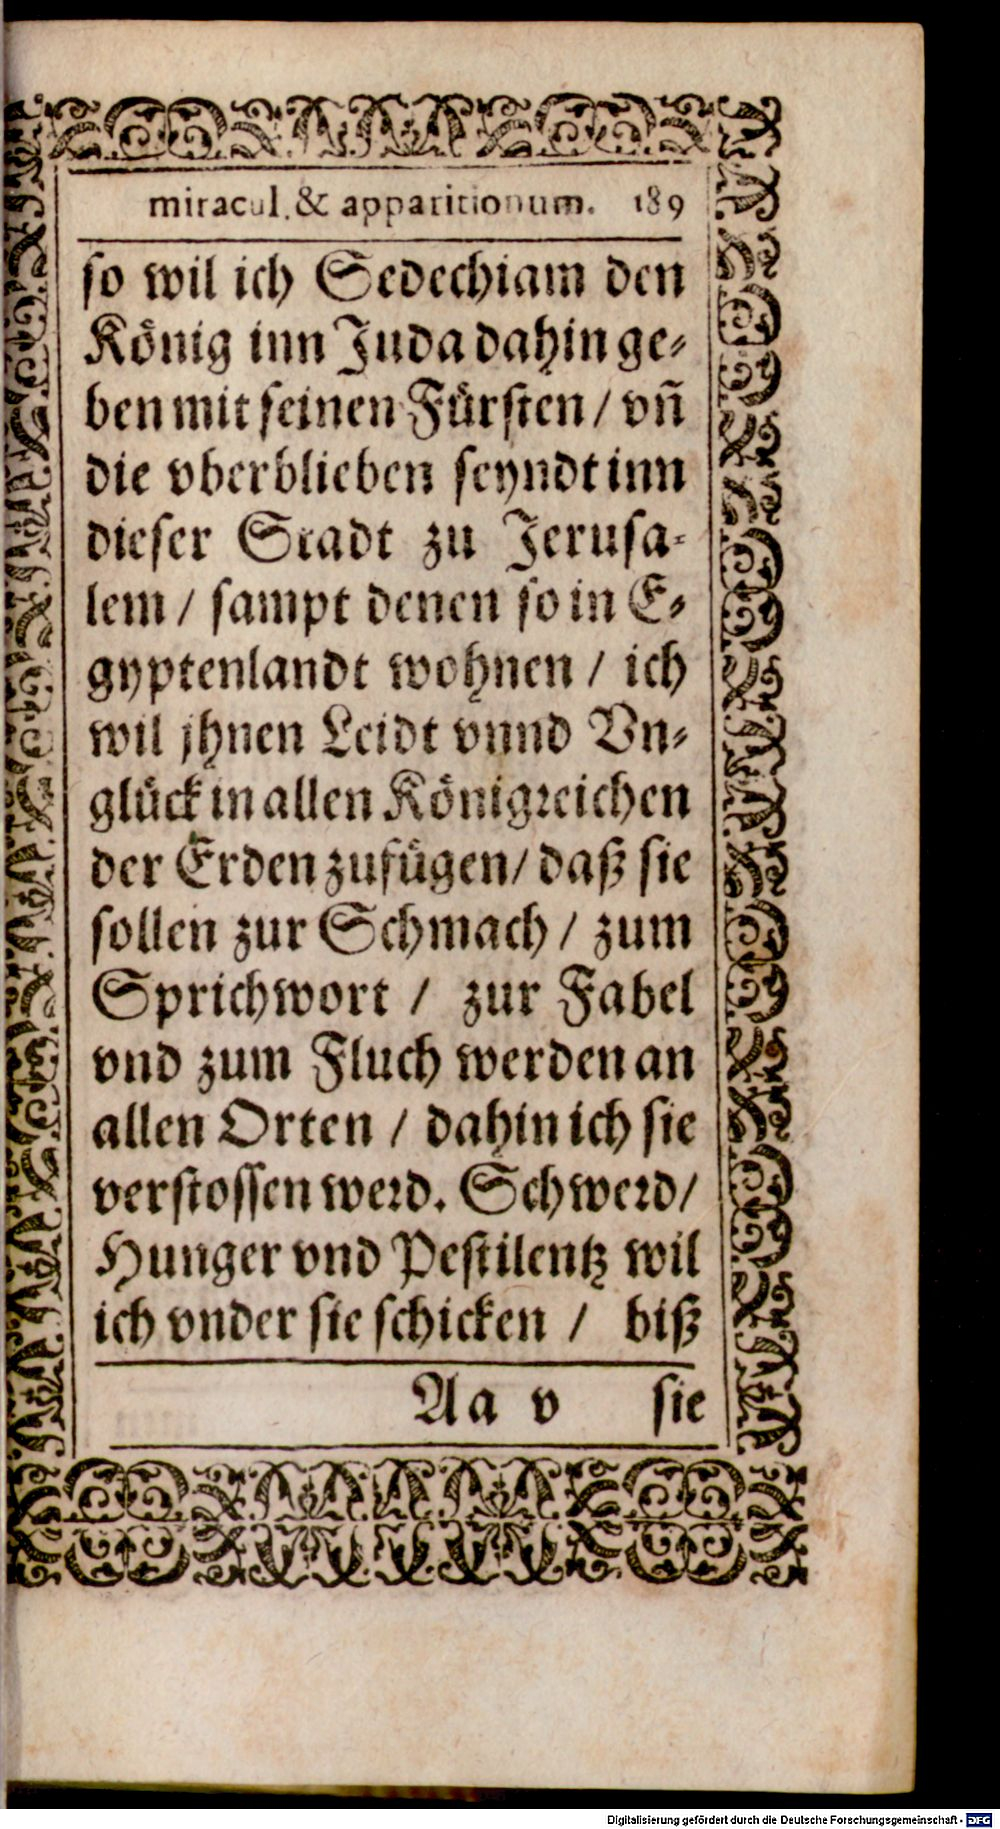 miracul. & apparitionum. 189
so wil ich Sedechiam den
König inn Juda dahin ge⸗
ben mit seinen Fürsten / vñ
die vberblieben seyndt inn
dieser Stadt zu Jerusa⸗
lem / sampt denen so in E⸗
gyptenlandt wohnen / ich
wil jhnen Leidt vnnd Vn⸗
glück in allen Königreichen
der Erden zufügen / daß sie
sollen zur Schmach / zum
Sprichwort / zur Fabel
vnd zum Fluch werden an
allen Orten / dahin ich sie
verstossen werd. Schwerd /
Hunger vnd Pestilentz wil
ich vnder sie schicken / biß
Aa v sie
Digitalisierung gefördert durch die Deutsche Forschungsgemeinschaft - DFG